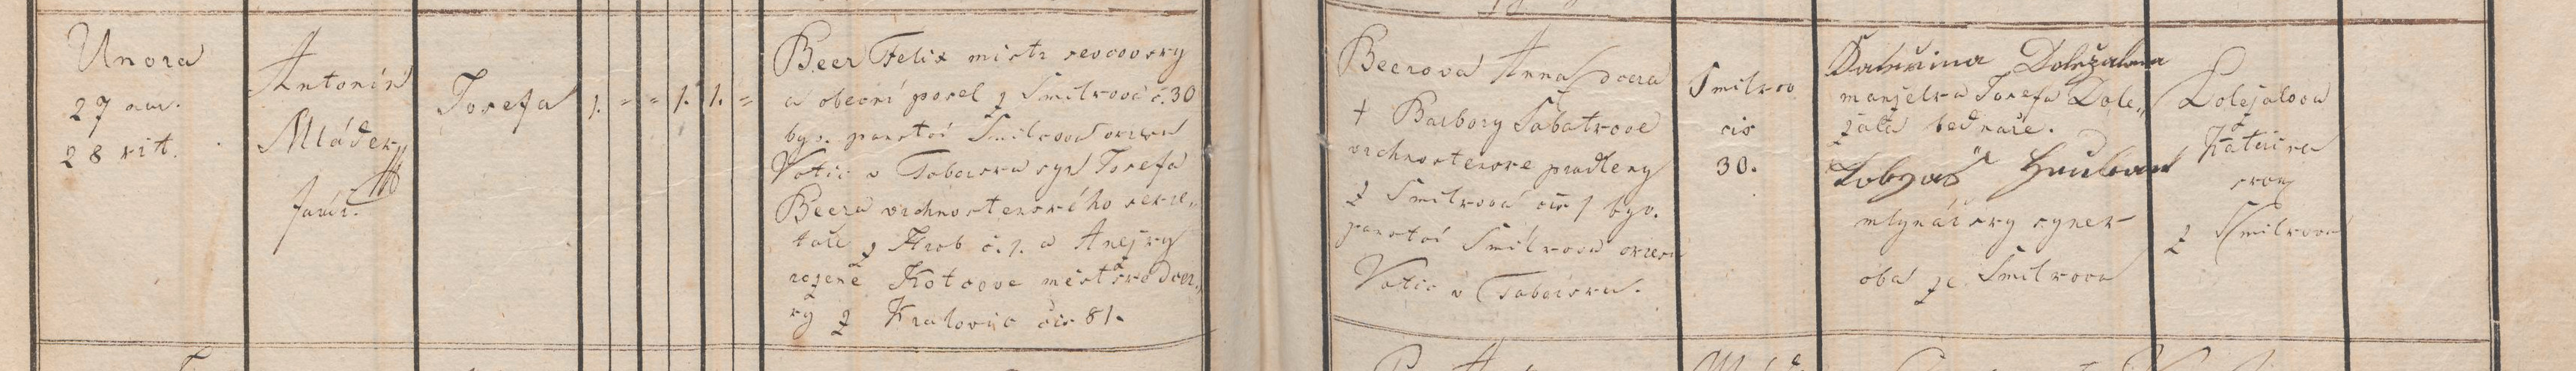 Unora
27 nar.
28 křt.
Antonín
Mláďek
farář.
Josefa
1. " " 1. 1. "
Beer Felix mistr ševcovský
a obecní posel z Smilkova č. 30
byv. panství Smilkova okresu
Votic v Táborsku syn Josefa
Beera vrchnostenského sekre„
táře z Hrob č. 1. a Anežky
rozené Kotcove mistrské dcer„
ky z Kralovic čís 81.
Beerova Anna dcera
† Barbory Sabatkove
vrchnostenske pradleny
z Smilkova čís 1 byv.
panství Smilkova okresu
Votic v Táborsku.
Smilkov
čís
30.
Kateřina Doležalova
manželka Josefa Dole„
žala bednáře.
Tobyáš
mlynářský synek
oba ze Smilkova
Doležalova
Kateřina
z Smilkova